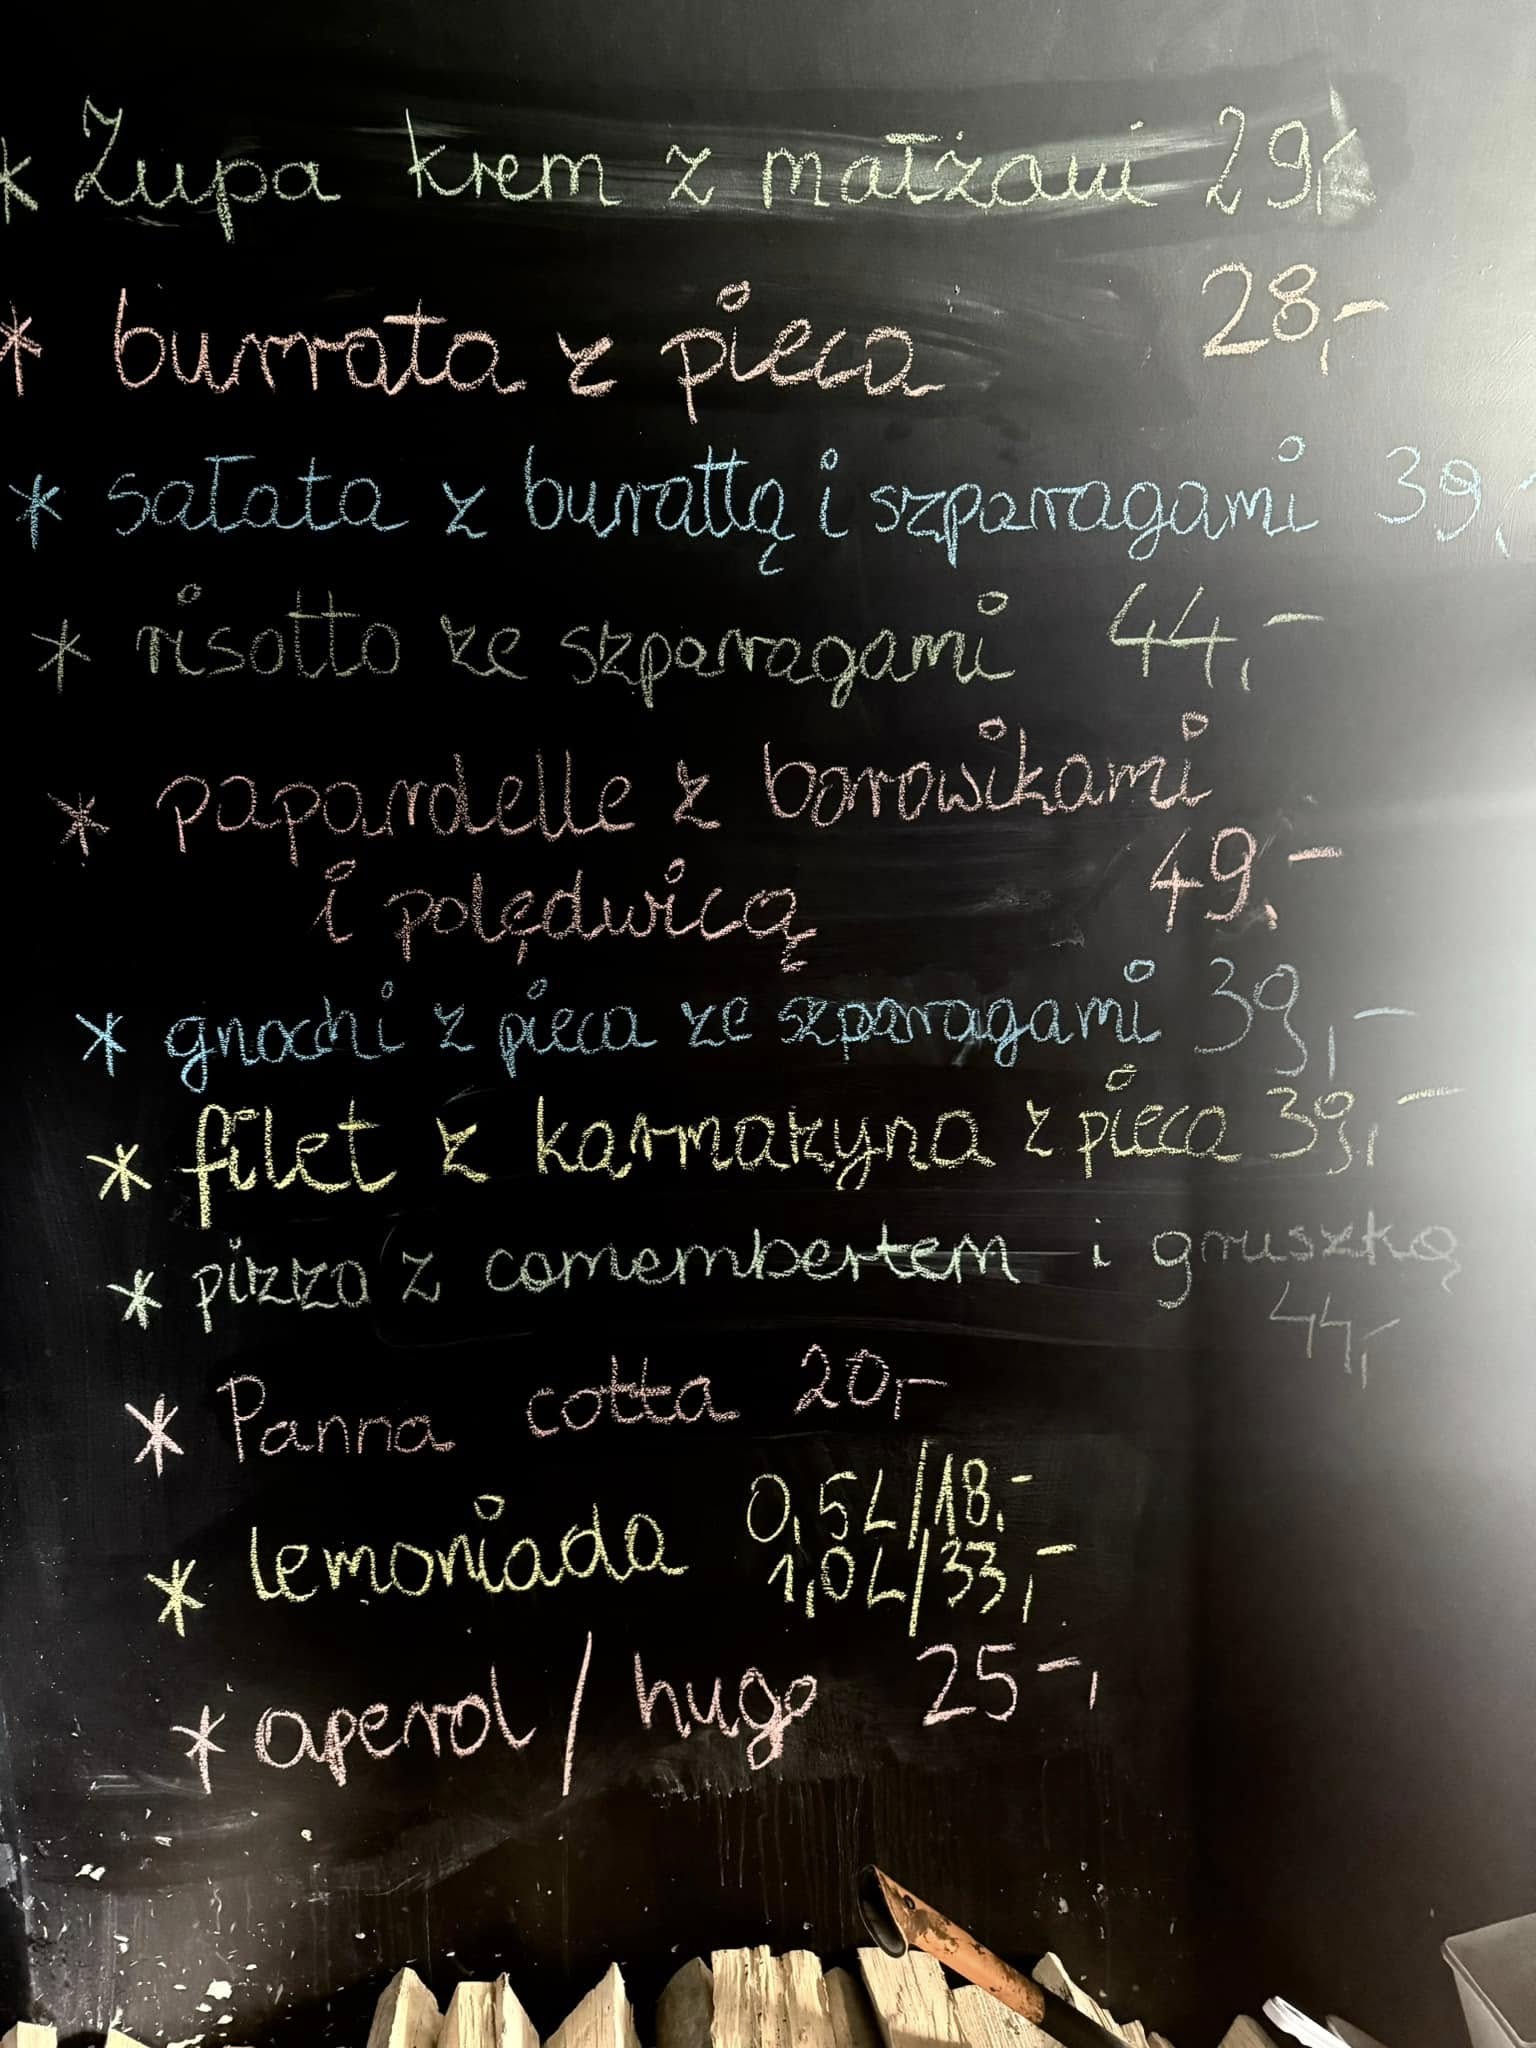 * Zupa krem z małżami 29,-
* burrata z pieca 28,-
* sałata z burattą i szparagami 39,-
* risotto ze szparagami 44,-
* papardelle z borowikami
i polędwicą 49,-
* gnochi z pieca ze szparagami 39,-
* filet z karmazyna z pieca 39,-
* pizza z camembertem i gruszką
44,-
* Panna cotta 20,-
* lemoniada 0,5L/18,-
1,0L/33,-
* aperol/hugo 25-,